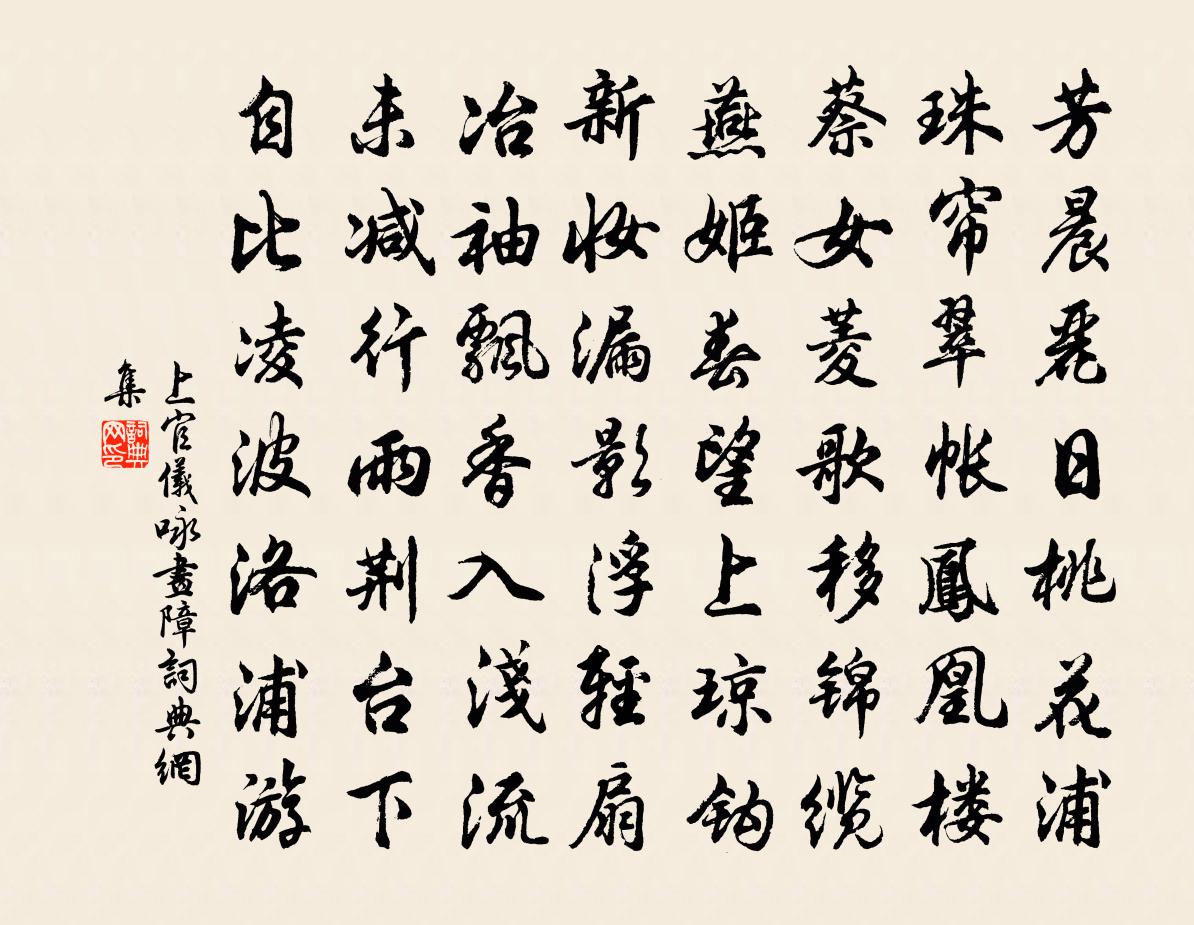 芳晨麗日桃花浦
珠帘翠帐鳳凰楼
蔡女菱歌移锦缆
燕姬春望上琼钩
新妆漏影浮輕扇
冶袖飄香入淺流
未减行雨荆台下
自比凌波洛浦游
上官儀咏畫障詞典網
集
詞典网印